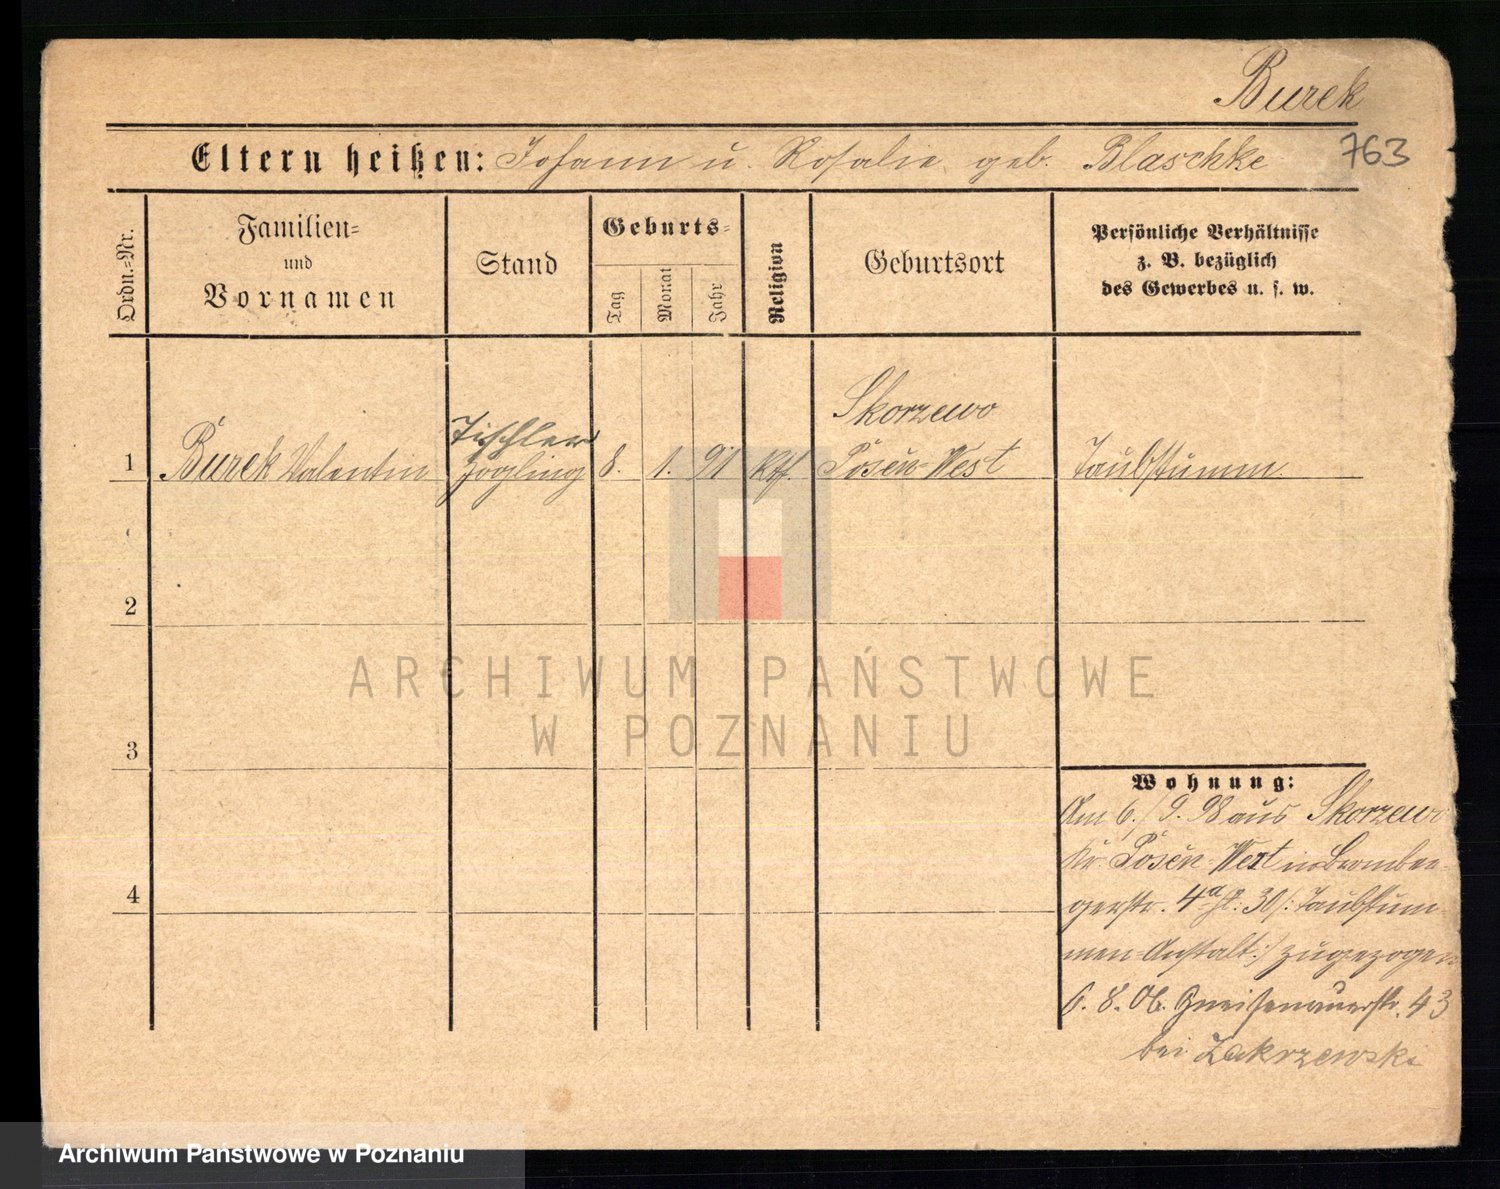 Burek
Eltern heißen: Johann u. Rosalie geb. Blaschke 763
Ordn.-Nr.
Familien-
und
Vornamen
Stand
Geburts-
Tag
Monat
Jahr
Religion
Geburtsort
Persönliche Verhältnisse
z. B. bezüglich
des Gewerbes u. s. w.
1
Burek Valentin
Tischler
Zögling
8. 1. 91 Kth.
Skorzewo
Posen-West
Taubstumm.
2
3
4
ARCHIWUM PAŃSTWOWE
W POZNANIU
Wohnung:
Am 6./9. 98 aus Skorzewo
Kr. Posen-West in Bromber-
gerstr. 4a II: 30/: Taubstum-
men-Anstalt:/ zugezogen
6. 8. 06. Gneisenauerstr. 43
bei Zakrzewski
Archiwum Państwowe w Poznaniu